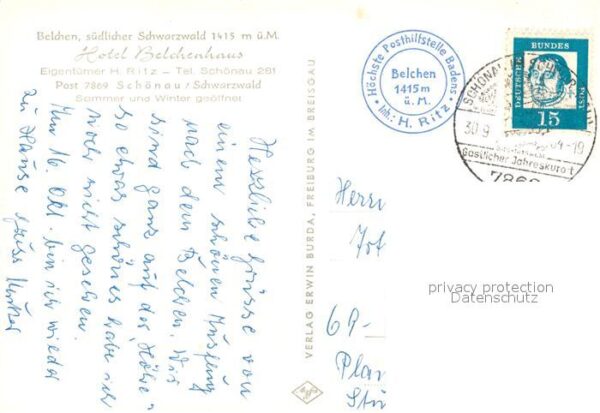 Belchen, südlicher Schwarzwald 1415 m ü.M.
Hotel Belchenhaus
Eigentümer H. Ritz – Tel. Schönau 281
Post 7869 Schönau / Schwarzwald
Sommer und Winter geöffnet
Herzliche Grüsse von
einem schönen Ausflug
nach dem Belchen. Wir
sind ganz auf der Höhe
so etwas schönes habe ich
noch nicht gesehen.
Am 16. Okt. bin ich wieder
zu Hause
VERLAG ERWIN BURDA, FREIBURG IM BREISGAU
Agfa
Höchste Posthilfstelle Badens
Belchen
1415 m
ü. M.
Inh.: H. Ritz
SCHÖNAU
30.9
-19
Gastlicher Jahreskurort
7869
DEUTSCHE
BUNDES
POST
15
Herrn
69-
privacy protection
Datenschutz